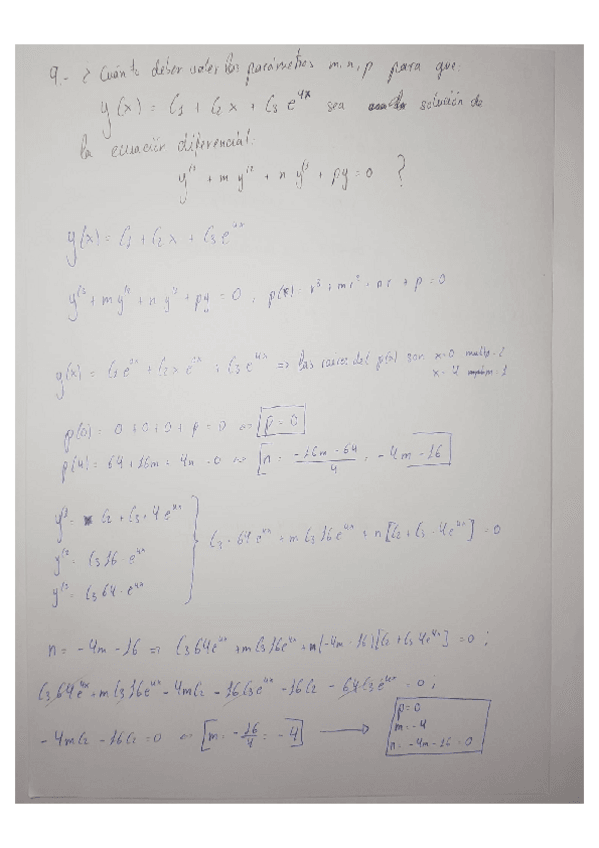 9.- ¿ Cuánto deben valer los parámetros m, n, p para que:
y(x) = C1 + C2 x + C3 e^4x sea solución de
la ecuación diferencial:
y'3 + m y'2 + n y'1 + py = 0 ?
y(x) = C1 + C2 x + C3 e^4x
y'3 + m y'2 + n y'1 + py = 0 , p(r) = r^3 + mr^2 + nr + p = 0
y(x) = C1 e^0x + C2 x e^0x + C3 e^4x => las raices del p(x) son x=0 multp=2
x=4 =1
p(0) = 0+0+0+p = 0 => p = 0
p(4) = 64 + 16m + 4n = 0 => [n = (-16m - 64)/4 = -4m - 16]
y'1 = C2 + C3 · 4 e^4x
y'2 = C3 16 · e^4x
y'3 = C3 64 · e^4x
} C3 · 64 e^4x + m C3 16 e^4x + n [C2 + C3 · 4 e^4x] = 0
n = -4m - 16 => C3 64 e^4x + m C3 16 e^4x + (-4m - 16)[C2 + C3 4 e^4x] = 0 ;
C3 64 e^4x + m C3 16 e^4x - 4m C2 - 16 C3 e^4x - 16 C2 - 64 C3 e^4x = 0 ;
- 4m C2 - 16 C2 = 0 => [m = -16/4 = -4] →
p = 0
m = -4
n = -4m - 16 = 0